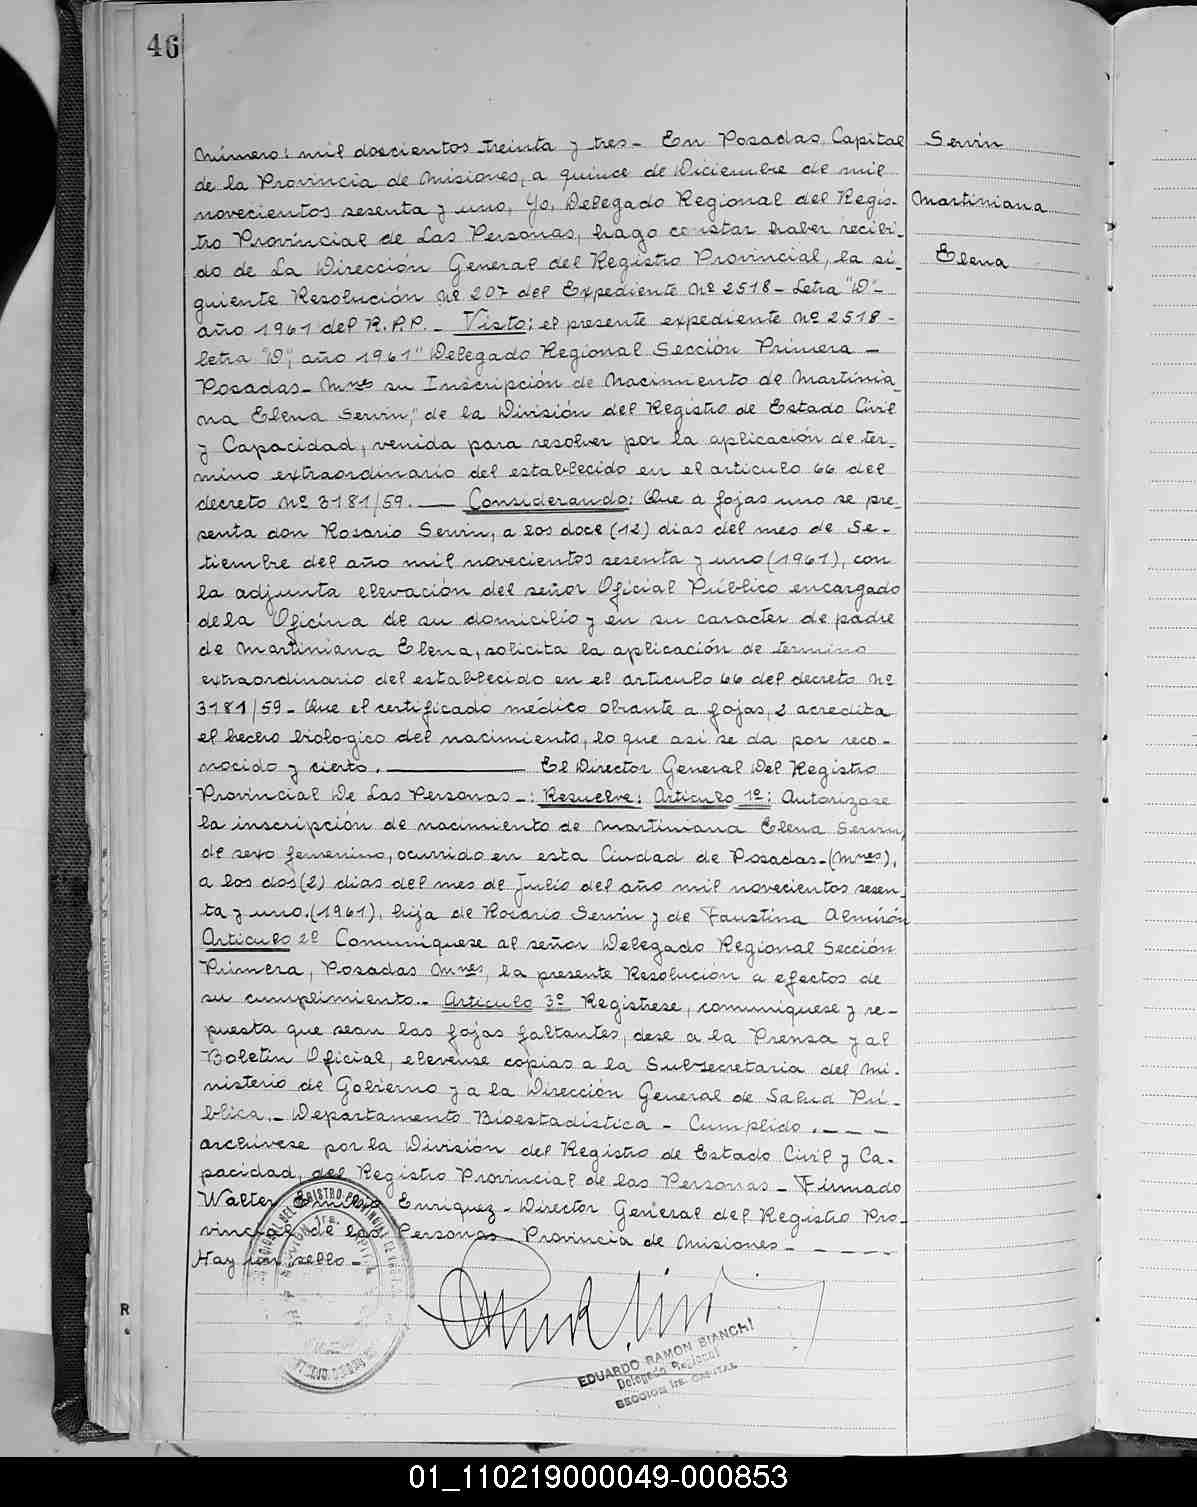 46
Número: mil doscientos treinta y tres - En Posadas, Capital
Servin
de la Provincia de Misiones, a quince de Diciembre de mil
novecientos sesenta y uno, Yo, Delegado Regional del Regis-
Martiniana
tro Provincial de Las Personas, hago constar haber recibi-
do de La Dirección General del Registro Provincial, la si-
Elena
guiente Resolución Nº 207 del Expediente Nº 2518 - Letra "D" -
año 1961 del R.P.P. - Visto: el presente expediente Nº 2518 -
letra "D", año 1961 "Delegado Regional Sección Primera -
Posadas - Mnes su Inscripción de Nacimiento de Martinia-
na Elena Servin", de la División del Registro de Estado Civil
y Capacidad, venida para resolver por la aplicación de ter-
mino extraordinario del establecido en el articulo 66 del
decreto Nº 3181/59. — Considerando: Que a fojas uno se pre-
senta don Rosario Servin, a los doce (12) dias del mes de Se-
tiembre del año mil novecientos sesenta y uno (1961), con
la adjunta elevación del señor Oficial Público encargado
de la Oficina de su domicilio y en su caracter de padre
de Martiniana Elena, solicita la aplicación de termino
extraordinario del establecido en el articulo 66 del decreto Nº
3181/59 - Que el certificado médico obrante a fojas, 2 acredita
el hecho biologico del nacimiento, lo que asi se da por reco-
nocido y cierto. ——— El Director General Del Registro
Provincial De Las Personas -: Resuelve: Artículo 1º: Autorizase
la inscripción de nacimiento de Martiniana Elena Servin,
de sexo femenino, ocurrido en esta Ciudad de Posadas - (Mnes),
a los dos (2) dias del mes de Julio del año mil novecientos sesen-
ta y uno. (1961), hija de Rosario Servin y de Faustina Almirón
Artículo 2º Comuniquese al señor Delegado Regional Sección
Primera, Posadas Mnes, la presente Resolución a efectos de
su cumplimiento. - Artículo 3º Registrese, comuniquese y re-
puesta que sean las fojas faltantes, dese a la Prensa y al
Boletin Oficial, elevense copias a la Subsecretaria del Mi-
nisterio de Gobierno y a la Dirección General de Salud Pú-
blica. - Departamento Bioestadistica - Cumplido. - - -
archivese por la División del Registro de Estado Civil y Ca-
pacidad, del Registro Provincial de las Personas - Firmado
Walter Enriquez - Director General del Registro Pro-
vincial de las Personas - Provincia de Misiones - - - -
Hay un sello -
EDUARDO RAMON BIANCHI
Delegado Regional
SECCION 1ra. CAPITAL
R
01_110219000049-000853